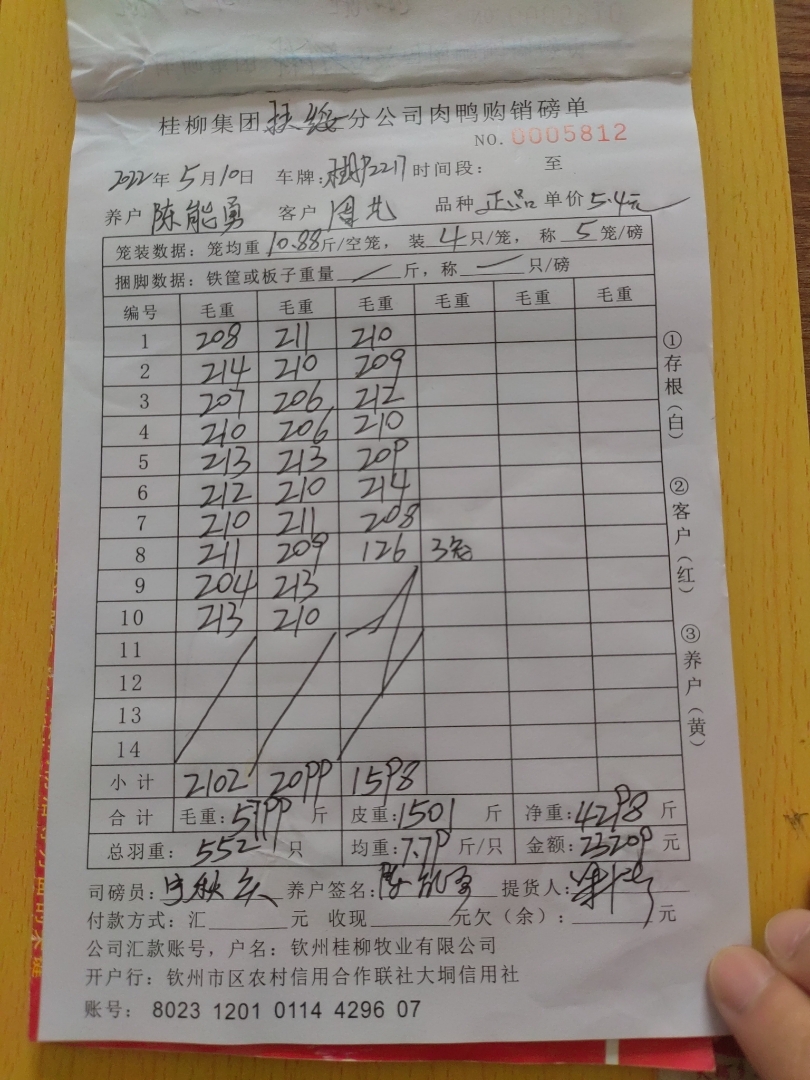 桂柳集团扶绥分公司肉鸭购销磅单
NO. 0005812
2022年5月10日 车牌: 2217 时间段: 至
养户 陈能勇 客户 品种 正品 单价 5.4元
笼装数据: 笼均重 10.88 斤/空笼, 装 4 只/笼, 称 5 笼/磅
捆脚数据: 铁筐或板子重量 / 斤, 称 — 只/磅
编号 毛重 毛重 毛重 毛重 毛重 毛重
1 208 211 210
2 214 210 209
3 207 206 212
4 210 206 210
5 213 213 209
6 212 210 214
7 210 211 208
8 211 209 126 3笼
9 204 213
10 213 210
11
12
13
14
小计 2102 2099 1598
合计 毛重: 5799 斤 皮重: 1501 斤 净重: 4298 斤
总羽重: 552 只 均重: 7.79 斤/只 金额: 23209 元
司磅员: 养户签名: 提货人:
付款方式: 汇 元 收现 元欠(余): 元
公司汇款账号, 户名: 钦州桂柳牧业有限公司
开户行: 钦州市区农村信用合作联社大垌信用社
账号: 8023 1201 0114 4296 07
①存根(白)
②客户(红)
③养户(黄)